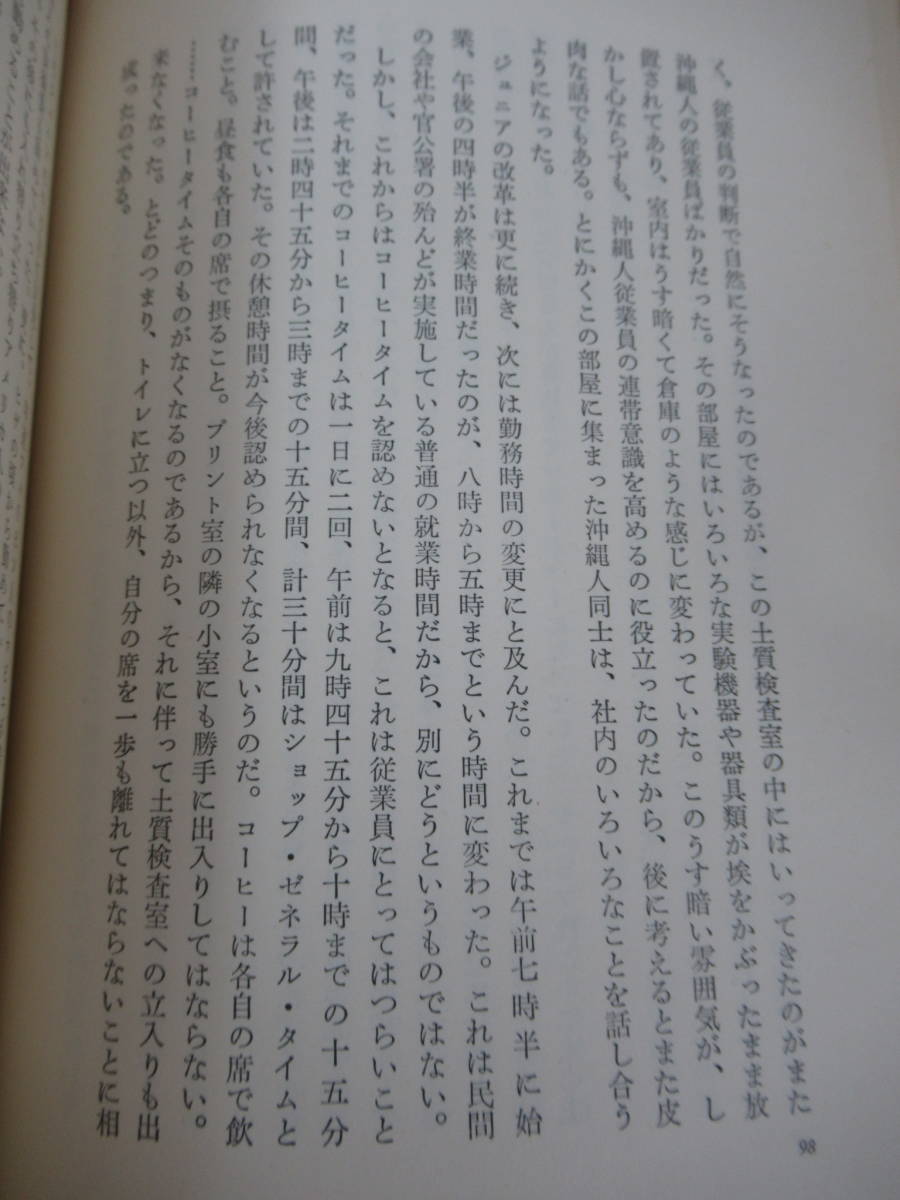 く、従業員の判断で自然にそうなったのであるが、この土質検査室の中にはいってきたのがまた
沖縄人の従業員ばかりだった。その部屋にはいろいろな実験機器や器具類が埃をかぶったまま放
置されてあり、室内はうす暗くて倉庫のような感じに変わっていた。このうす暗い雰囲気が、し
かし心ならずも、沖縄人従業員の連帯意識を高めるのに役立ったのだから、後に考えるとまた皮
肉な話でもある。とにかくこの部屋に集まった沖縄人同士は、社内のいろいろなことを話し合う
ようになった。
ジュニアの改革は更に続き、次には勤務時間の変更にと及んだ。これまでは午前七時半に始
業、午後の四時半が終業時間だったのが、八時から五時までという時間に変わった。これは民間
の会社や官公署の殆んどが実施している普通の就業時間だから、別にどうというものではない。
しかし、これからはコーヒータイムを認めないとなると、これは従業員にとってはつらいこと
だった。それまでのコーヒータイムは一日に二回、午前は九時四十五分から十時までの十五分
間、午後は二時四十五分から三時までの十五分間、計三十分間はショップ・ゼネラル・タイムと
して許されていた。その休憩時間が今後認められなくなるというのだ。コーヒーは各自の席で飲
むこと。昼食も各自の席で摂ること。プリント室の隣の小室にも勝手に出入りしてはならない。
……コーヒータイムそのものがなくなるのであるから、それに伴って土質検査室への立入りも出
来なくなった。とどのつまり、トイレに立つ以外、自分の席を一歩も離れてはならないことに相
成ったのである。
98